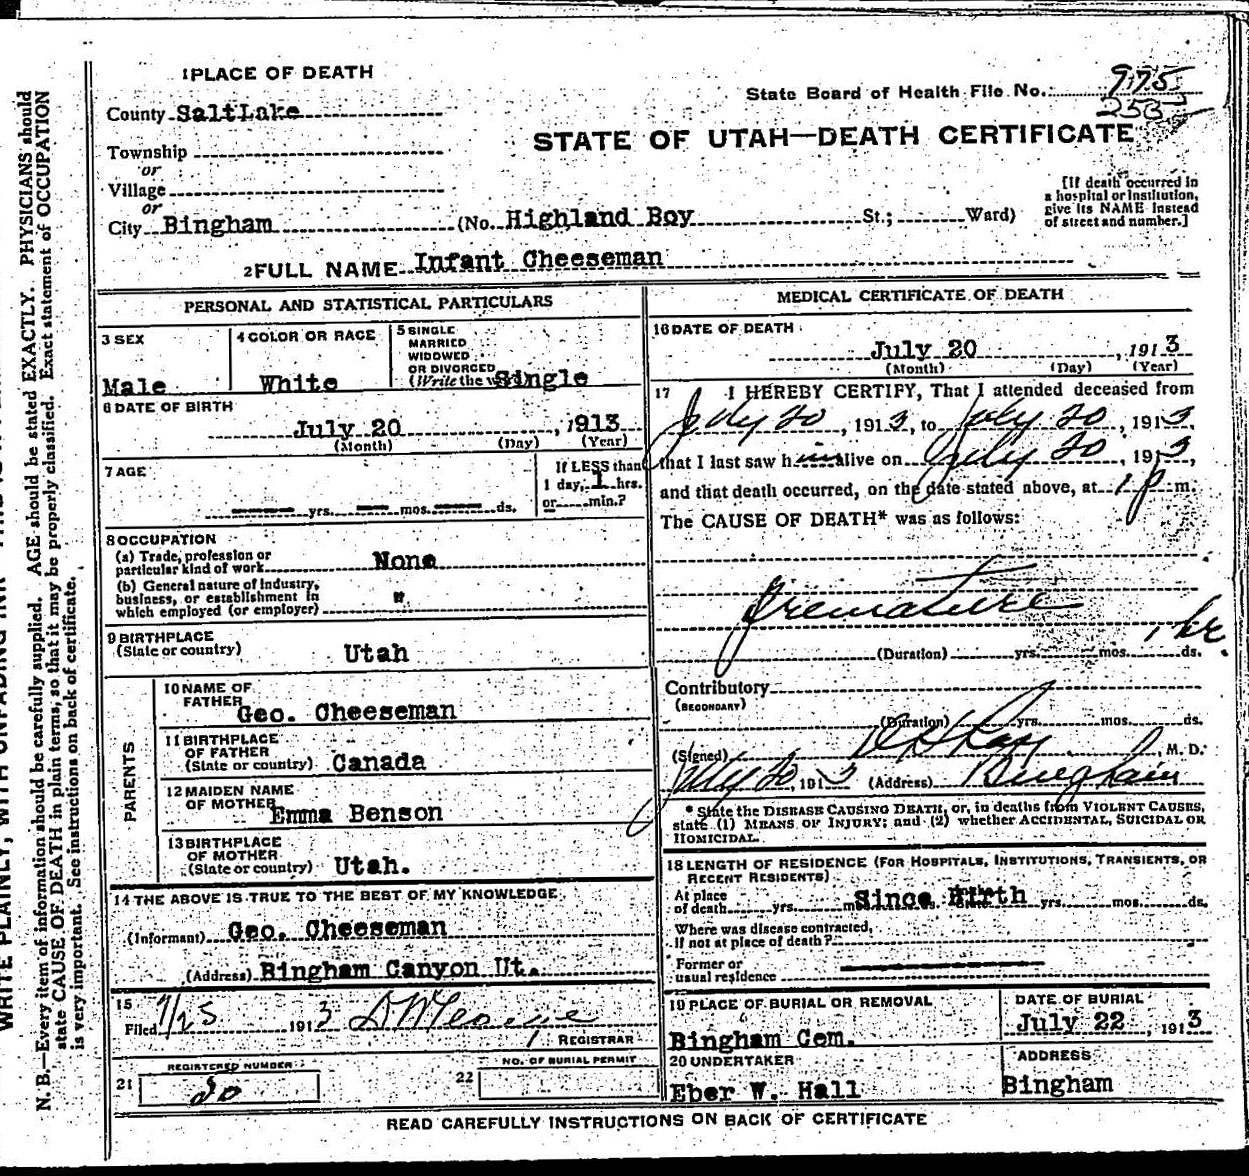 1 PLACE OF DEATH
County SaltLake
Township
or
Village
or
City Bingham (No. Highland Boy St.; Ward)
State Board of Health File No. 975
253
STATE OF UTAH—DEATH CERTIFICATE
[If death occurred in
a hospital or institution,
give its NAME instead
of street and number.]
2 FULL NAME Infant Cheeseman
PERSONAL AND STATISTICAL PARTICULARS
3 SEX
Male
4 COLOR OR RACE
White
5 SINGLE
MARRIED
WIDOWED
OR DIVORCED
(Write the Single
6 DATE OF BIRTH
July 20, 1913
(Month) (Day) (Year)
7 AGE
yrs. mos. ds.
If LESS than
1 day, 1 hrs.
or min.?
8 OCCUPATION
(a) Trade, profession or
particular kind of work None
(b) General nature of Industry,
business, or establishment in
which employed (or employer) "
9 BIRTHPLACE
(State or country) Utah
PARENTS
10 NAME OF
FATHER Geo. Cheeseman
11 BIRTHPLACE
OF FATHER
(State or country) Canada
12 MAIDEN NAME
OF MOTHER Emma Benson
13 BIRTHPLACE
OF MOTHER
(State or country) Utah.
14 THE ABOVE IS TRUE TO THE BEST OF MY KNOWLEDGE
(Informant) Geo. Cheeseman
(Address) Bingham Canyon Ut.
15
Filed 7/25 1913
REGISTRAR
REGISTERED NUMBER
21 20
NO. OF BURIAL PERMIT
22
MEDICAL CERTIFICATE OF DEATH
16 DATE OF DEATH
July 20, 1913
(Month) (Day) (Year)
17 I HEREBY CERTIFY, That I attended deceased from
July 20, 1913, to July 20, 1913,
that I last saw him alive on July 20, 1913,
and that death occurred, on the date stated above, at 1 p m.
The CAUSE OF DEATH* was as follows:
Premature
1 hr.
(Duration) yrs. mos. ds.
Contributory
(SECONDARY)
(Duration) yrs. mos. ds.
(Signed) M. D.
July 20, 1913 (Address) Bingham
* State the DISEASE CAUSING DEATH, or, in deaths from VIOLENT CAUSES,
state (1) MEANS OF INJURY; and (2) whether ACCIDENTAL, SUICIDAL OR
HOMICIDAL.
18 LENGTH OF RESIDENCE (FOR HOSPITALS, INSTITUTIONS, TRANSIENTS, OR
RECENT RESIDENTS)
At place
of death yrs. Since Birth yrs. mos. ds.
Where was disease contracted,
if not at place of death?
Former or
usual residence
19 PLACE OF BURIAL OR REMOVAL
Bingham Cem.
DATE OF BURIAL
July 22, 1913
20 UNDERTAKER
Eber W. Hall
ADDRESS
Bingham
READ CAREFULLY INSTRUCTIONS ON BACK OF CERTIFICATE
N. B.—Every item of information should be carefully supplied. AGE should be stated EXACTLY. PHYSICIANS should
state CAUSE OF DEATH in plain terms, so that it may be properly classified. Exact statement of OCCUPATION
is very important. See instructions on back of certificate.